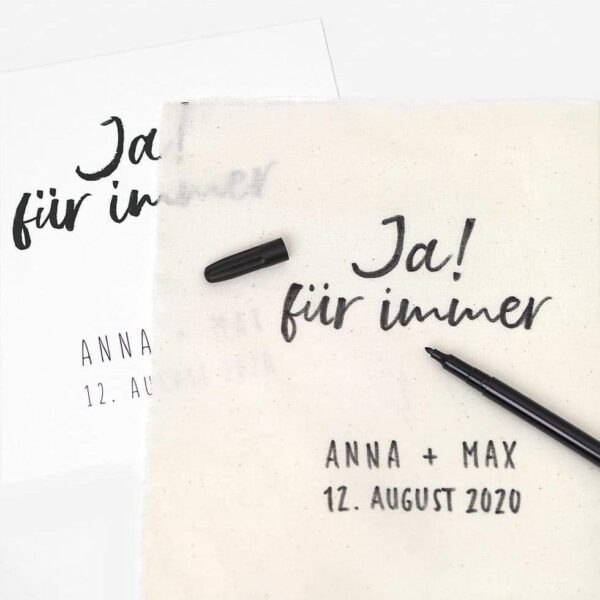 Ja!
für immer
ANNA + MAX
12. AUGUST 2020
Ja!
für immer
ANNA + MAX
12. AUGUST 2020